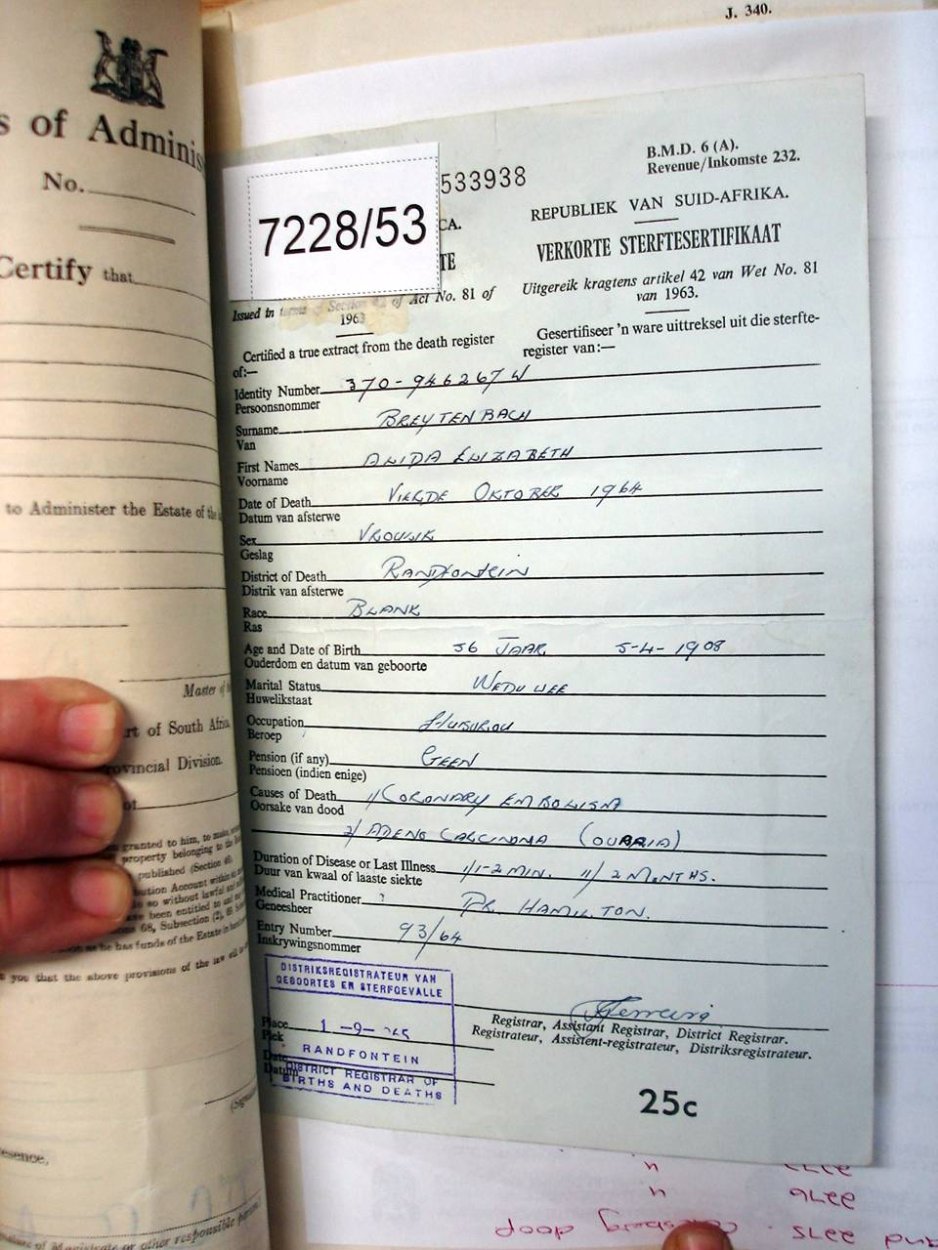 J. 340.
s of Adminis
No.
Certify that
to Administer the Estate of the
Master of
rt of South Afri
rovincial Division.
granted to him, to
property belonging to the
published (Section
bution Account within
so without lawful
been entitled to
68, Subsection (2),
as he has funds of the Estate in
you that the above provisions of the law will
esence,
of Magistrate or other responsible person.
7228/53
533938
B.M.D. 6 (A).
Revenue/Inkomste 232.
CA.
REPUBLIEK VAN SUID-AFRIKA.
TE
VERKORTE STERFTESERTIFIKAAT
Issued in terms of Section 42 of Act No. 81 of
1963
Uitgereik kragtens artikel 42 van Wet No. 81
van 1963.
Certified a true extract from the death register
of:—
Gesertifiseer 'n ware uittreksel uit die sterfte-
register van:—
Identity Number 370-946267W
Persoonsnommer
Surname BREYTENBACH
Van
First Names ALIDA ELIZABETH
Voorname
Date of Death VIERDE OKTOBER 1964
Datum van afsterwe
Sex VROULIK
Geslag
District of Death RANDFONTEIN
Distrik van afsterwe
Race BLANK
Ras
Age and Date of Birth 56 JAAR 5-4-1908
Ouderdom en datum van geboorte
Marital Status WEDUWEE
Huwelikstaat
Occupation HUISVROU
Beroep
Pension (if any) GEEN
Pensioen (indien enige)
Causes of Death 1/ CORONARY EMBOLISM
Oorsake van dood
2/ ADENO CALCINOMA (OUARIA)
Duration of Disease or Last Illness 1/1-2 MIN. 11/2 MONTHS.
Duur van kwaal of laaste siekte
Medical Practitioner ? DR. HAMILTON.
Geneesheer
Entry Number 93/64
Inskrywingsnommer
DISTRIKSREGISTRATEUR VAN
GEBOORTES EN STERFGEVALLE
Place
Plek
1 -9-
RANDFONTEIN
Date
Datum
DISTRICT REGISTRAR OF
BIRTHS AND DEATHS
Registrar, Assistant Registrar, District Registrar.
Registrateur, Assistent-registrateur, Distriksregistrateur.
25c
doop